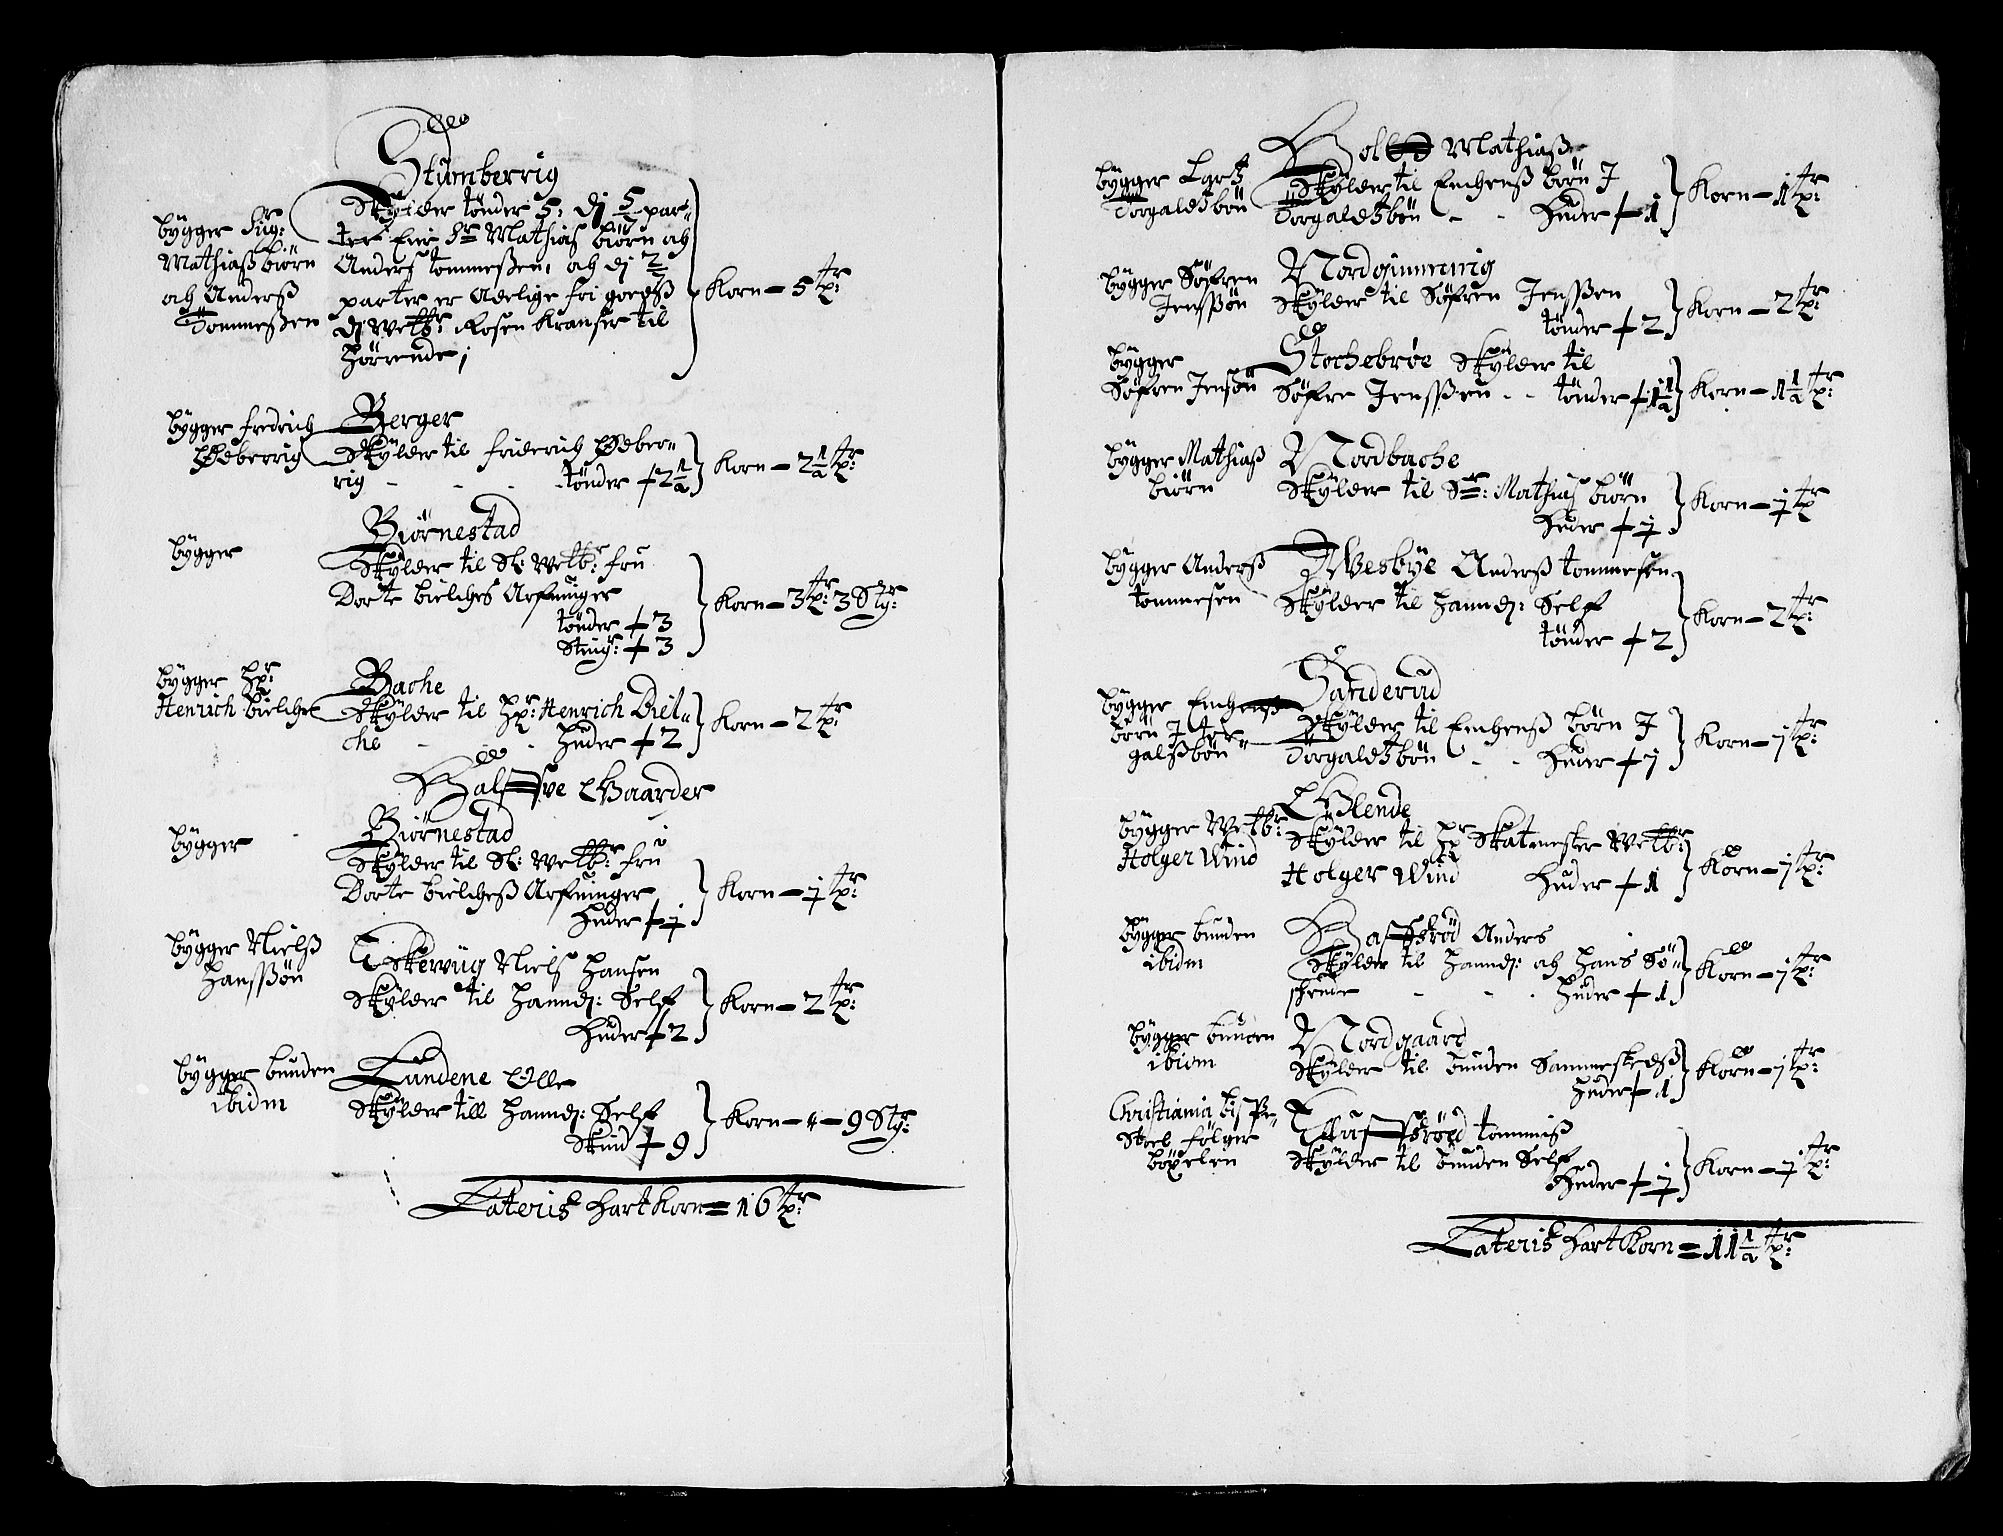 Stumberrig
bygger Sigr:
Mathiaß biørn
och Anderß
Tommeßen
Skylder tønder 5: dj 5/7 par-
ter Eier Sr Mathias biørn och
Anders tommeßen, och dj 2/7
parter er Adelige fri goedß
dj Welbr: Rosen Kranser til
Hørrende;
Korn - 5 tr:
bygger fredrich
Ødberrig
Berger
Skylder til friderich Ødber-
rig - - - tønder + 2½
Korn - 2½ tr:
bygger
Biørnestad
Skylder til Sl: Welbr: fru
Dorte bielches Arfuinger
tønder + 3
Stingr: + 3
Korn - 3 tr: 3 Stgr:
bygger Hr:
Henrich bielche
Bache
Skylder til Hr: Henrich Biel-
che - - Huder + 2
Korn - 2 tr:
Halffve Gaarder
bygger
Biørnestad
Skylder til Sl: Welbr: fru
Dorte bielcheß Arfuinger
Huder + 1
Korn - 1 tr:
bygger Nielß
Hanßøn
Eskevig Niels Hansen
Skylder til Hannem: Self
Huder + 2
Korn - 2 tr:
bygger bunden
ibidm
Lundene Olle
Skylder till Hannem: Self
Skind + 9
Korn - " - 9 Stgr:
Lateris hart Korn = 16 tr:
Mathiaß
bygger
Torgaletzbøn
Skylder til Enchenß børn I
Torgaletzbøn - - Huder + 1
Korn - 1 tr:
bygger Søfren
Jenßøn
Nordgimming
Skylder til Søfren Jenßen
tønder + 2
Korn - 2 tr:
bygger
Søfren Jensøn
Stochebrøe Skylder til
Søfre Jenßen - - tønder + 1½
Korn - 1½ tr:
bygger Mathiaß
biørn
Nordbache
Skylder til Sr: Mathias biørn
Huder + 1
Korn - 1 tr:
bygger Anderß
tommesen
Wesbye Anderß tommesen
Skylder til Hannem: Self
tønder + 2
Korn - 2 tr:
bygger Enchenß
børn I tor-
galßbøn
Sanderud
Skylder til Enchenß børn I
Torgaletzbøn - - Huder + 1
Korn - 1 tr:
bygger Welbr:
Holger Wind
Glende
Skylder til Hr Skatmester Welbr:
Holger Wind Huder + 1
Korn - 1 tr:
bygger bunden
ibidm
Haffsrød Anders
Skylder til Hannem: och Hans Sø-
schende - - - Huder + 1
Korn - 1 tr:
bygger bunden
ibidm
Nordgaard
Skylder til bunden Sammestedß
Huder + 1
Korn - 1 tr:
Christiania bispe-
Stoel følger
bøxelen
Ellaffsrød tommiß
Skylder til bunden Self
Huder + 1
Korn - 1 tr:
Lateris hart Korn = 11½ tr: